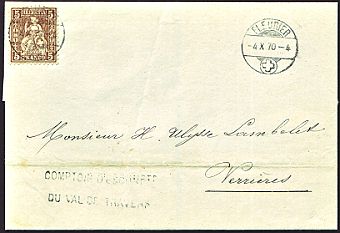 5 HELVETIA 5
FLEURIER
-4 X 70 -4
Monsieur H. Ulysse Lambelet
Verrières
COMPTOIR D'ESCOMPTE
DU VAL DE TRAVERS